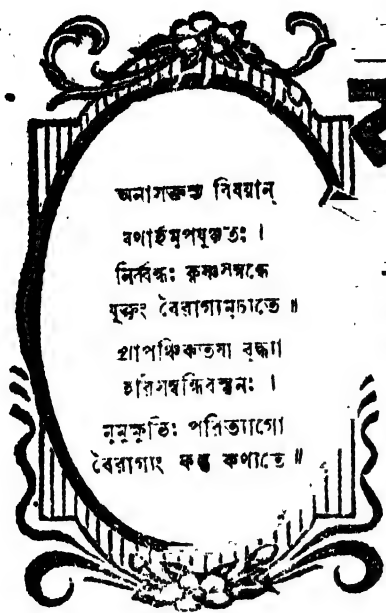 অনাসক্তস্য বিষয়ান্
যথার্হমুপযুঞ্জতঃ ।
নির্ব্বন্ধঃ কৃষ্ণসম্বন্ধে
যুক্তং বৈরাগ্যমুচ্যতে ॥
প্রাপঞ্চিকতয়া বুদ্ধ্যা
হরিসম্বন্ধিবস্তুনঃ ।
মুমুক্ষুভিঃ পরিত্যাগো
বৈরাগ্যং ফল্গু কথ্যতে ॥